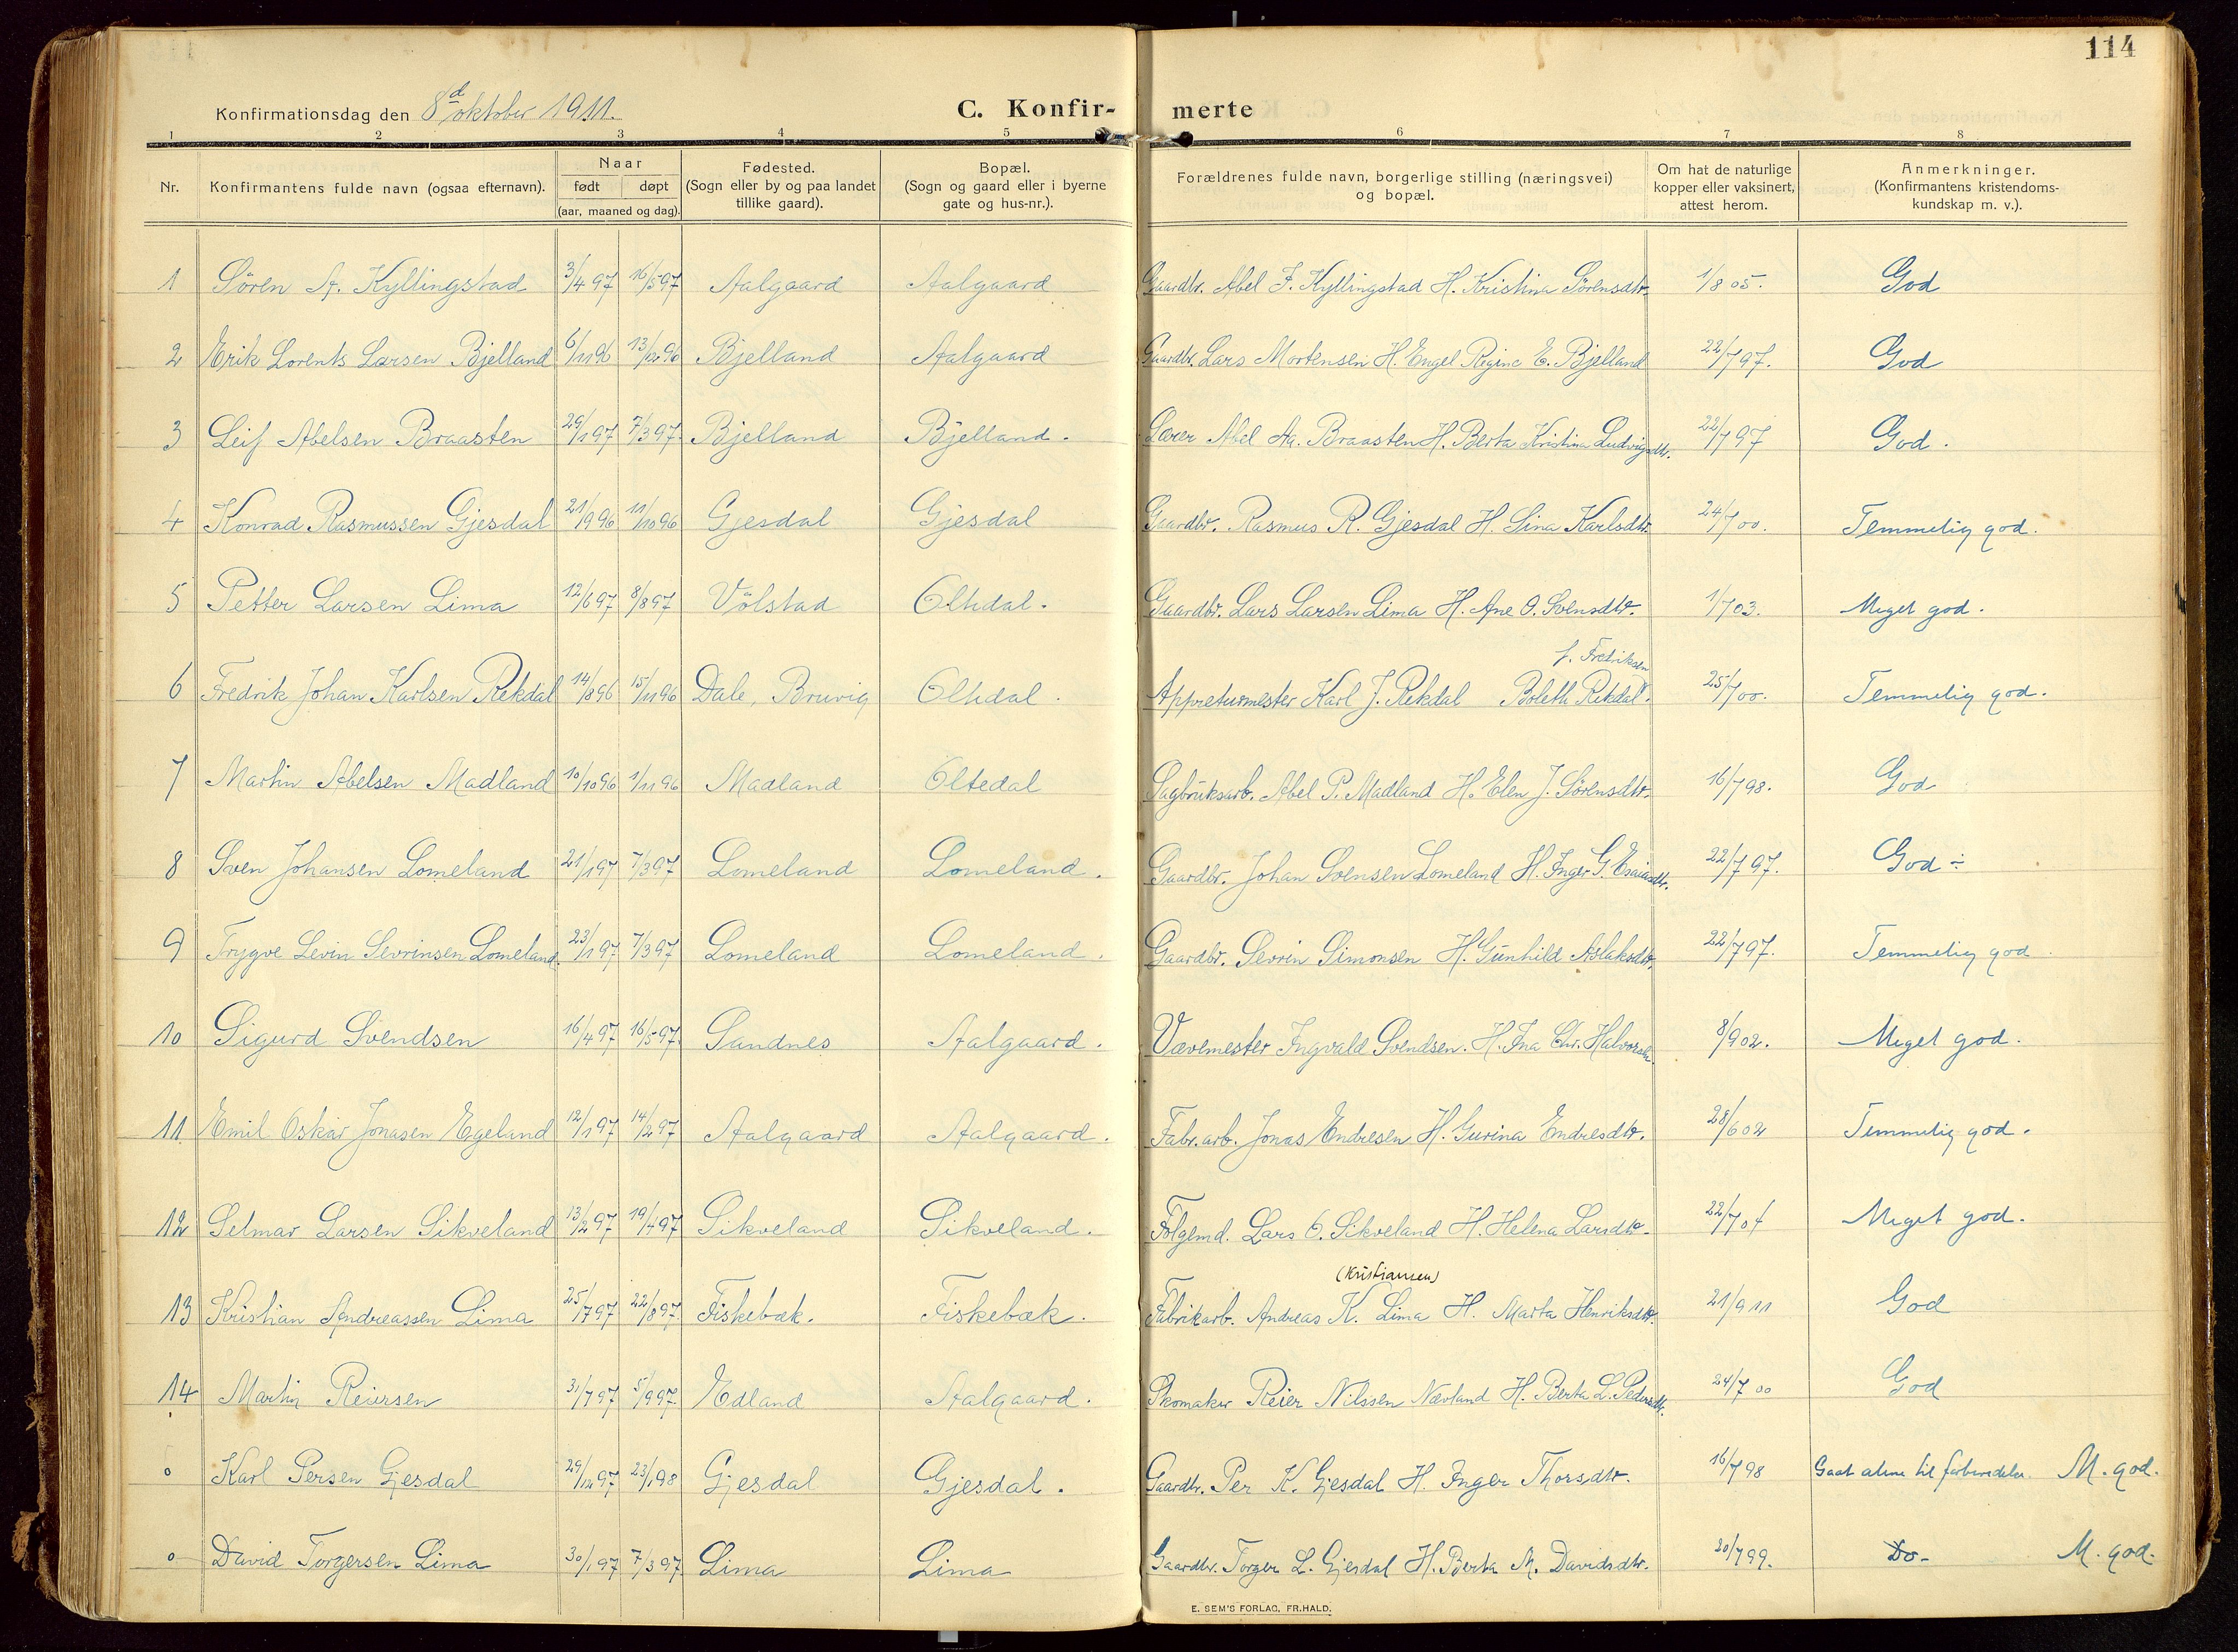 114
Konfirmationsdag den 8d oktober 1911. C. Konfir- merte
1 2 3 4 5 6 7 8
Nr. Konfirmantens fulde navn (ogsaa efternavn). Naar født døpt (aar, maaned og dag). Fødested. (Sogn eller by og paa landet tillike gaard). Bopæl. (Sogn og gaard eller i byerne gate og hus-nr.). Forældrenes fulde navn, borgerlige stilling (næringsvei) og bopæl. Om hat de naturlige kopper eller vaksinert, attest herom. Anmerkninger. (Konfirmantens kristendoms- kundskap m. v.).
1 Sören A. Kyllingstad 3/4 97 16/5 97 Aalgaard Aalgaard Gaardbr. Abel F. Kyllingstad H. Kristina Sörensdtr. 1/8 05. God
2 Erik Lorents Larsen Bjelland 6/11 96 13/12 96 Bjelland Aalgaard Gaardbr. Lars Mortensen H. Engel Regine E. Bjelland 22/7 97. God
3 Leif Abelsen Braasten 29/1 97 7/3 97. Bjelland Bjelland. Lærer Abel Aa. Braasten H. Berta Kristina Ludvigsdtr. 22/7 97 God.
4 Konrad Rasmussen Gjesdal 21/9 96 11/10 96 Gjesdal Gjesdal Gaardbr. Rasmus R. Gjesdal H. Sina Karlsdtr. 24/7 00. Temmelig god.
5 Petter Larsen Lima 12/6 97 8/8 97 Völstad Oltedal. Gaardbr. Lars Larsen Lima H. Ane O. Svensdtr. 1/7 03. Meget god.
f. Fredriksen
6 Fredrik Johan Karlsen Rekdal 14/8 96 15/11 96 Dale, Bruvig Oltedal. Appreturmester Karl J. Rekdal Boleth Rekdal. 25/7 00. Temmelig god.
7 Martin Abelsen Madland 10/10 96 1/11 96 Madland Oltedal Sagbruksarb. Abel P. Madland H. Elen J. Sörensdtr. 16/7 98. God
8 Sven Johansen Lomeland 21/1 97 7/3 97 Lomeland Lomeland. Gaardbr. Johan Svensen Lomeland H. Inger G. Esaiasdtr. 22/7 97. God ÷
9 Trygve Levin Sevrinsen Lomeland. 23/1 97 7/3 97 Lomeland Lomeland. Gaardbr. Sevrin Simonsen H. Gunhild Aslaksdtr. 22/7 97. Temmelig god
10 Sigurd Svendsen 16/4 97 16/5 97. Sandnes Aalgaard. Vævemester Ingvald Svendsen. H. Ina Chr. 8/9 02. Meget god.
11 Emil Oskar Jonasen Egeland 12/1 97 14/2 97 Aalgaard Aalgaard. Fabr.arb. Jonas Endresen H. Gurina Endresdtr. 28/6 02 Temmelig god.
12 Selmar Larsen Sikveland 13/2 97 19/4 97 Sikveland Sikveland. Folgemd. Lars O. Sikveland H. Helena Larsdtr. Meget god.
(Kristiansen)
13 Kristian Andreassen Lima 25/7 97 22/8 97. Fiskebæk. Fiskebæk. Fabrikarb. Andreas K. Lima H. Marta Henriksdtr. 21/9 11 God
14 Martin Reiersen 31/7 97 5/9 97. Edland Aalgaard. Skomaker Reier Nilssen Nævland H. Berta L. Pedersdtr. 24/7 00 God
o Karl Persen Gjesdal 29/12 97 23/1 98 Gjesdal Gjesdal. Gaardbr. Per K. Gjesdal H. Inger Thorsdtr. 16/7 98 Gaat alene til forberedelse. M. god.
o David Torgersen Lima 30/1 97 7/3 97 Lima Lima Gaardbr. Torger L. Gjesdal H. Berta M. Davidsdtr. 20/7 99. Do- M. god.
E. SEM'S FORLAG, FR.HALD.